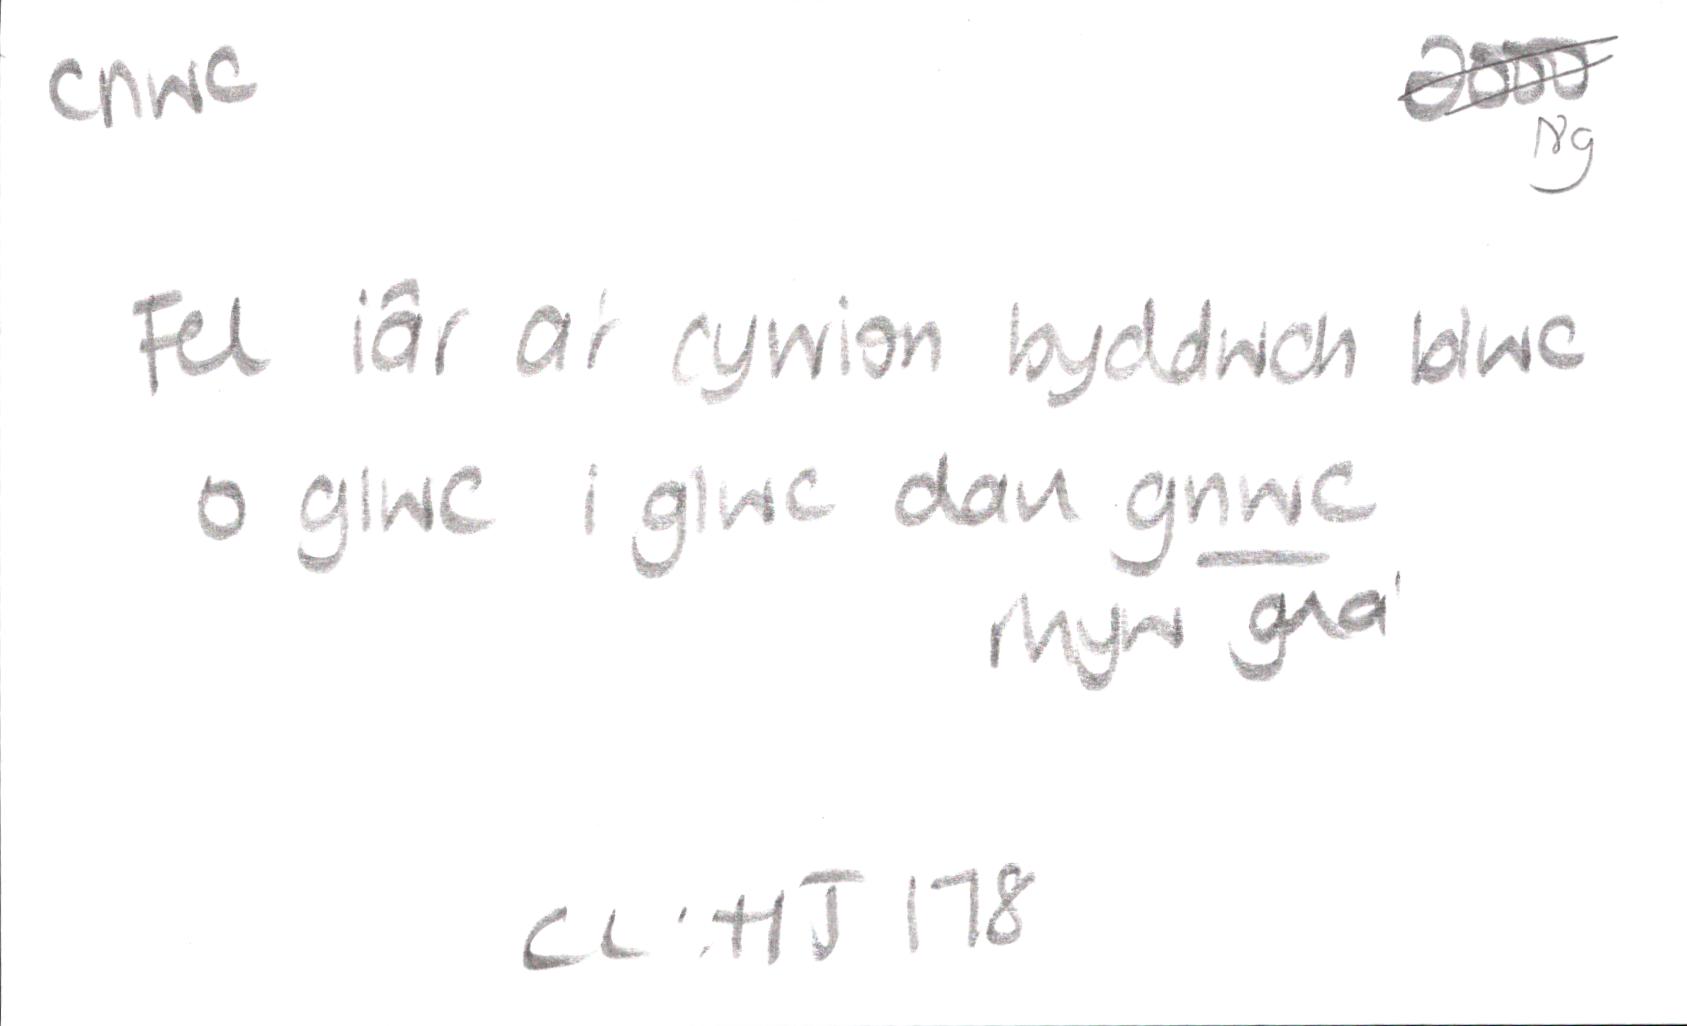 cnwc
2000
Ng
Fel iâr a'r cywion byddwch blwc
o glwc i glwc dau gnwc
rhyw gna'
CL: HJ 178